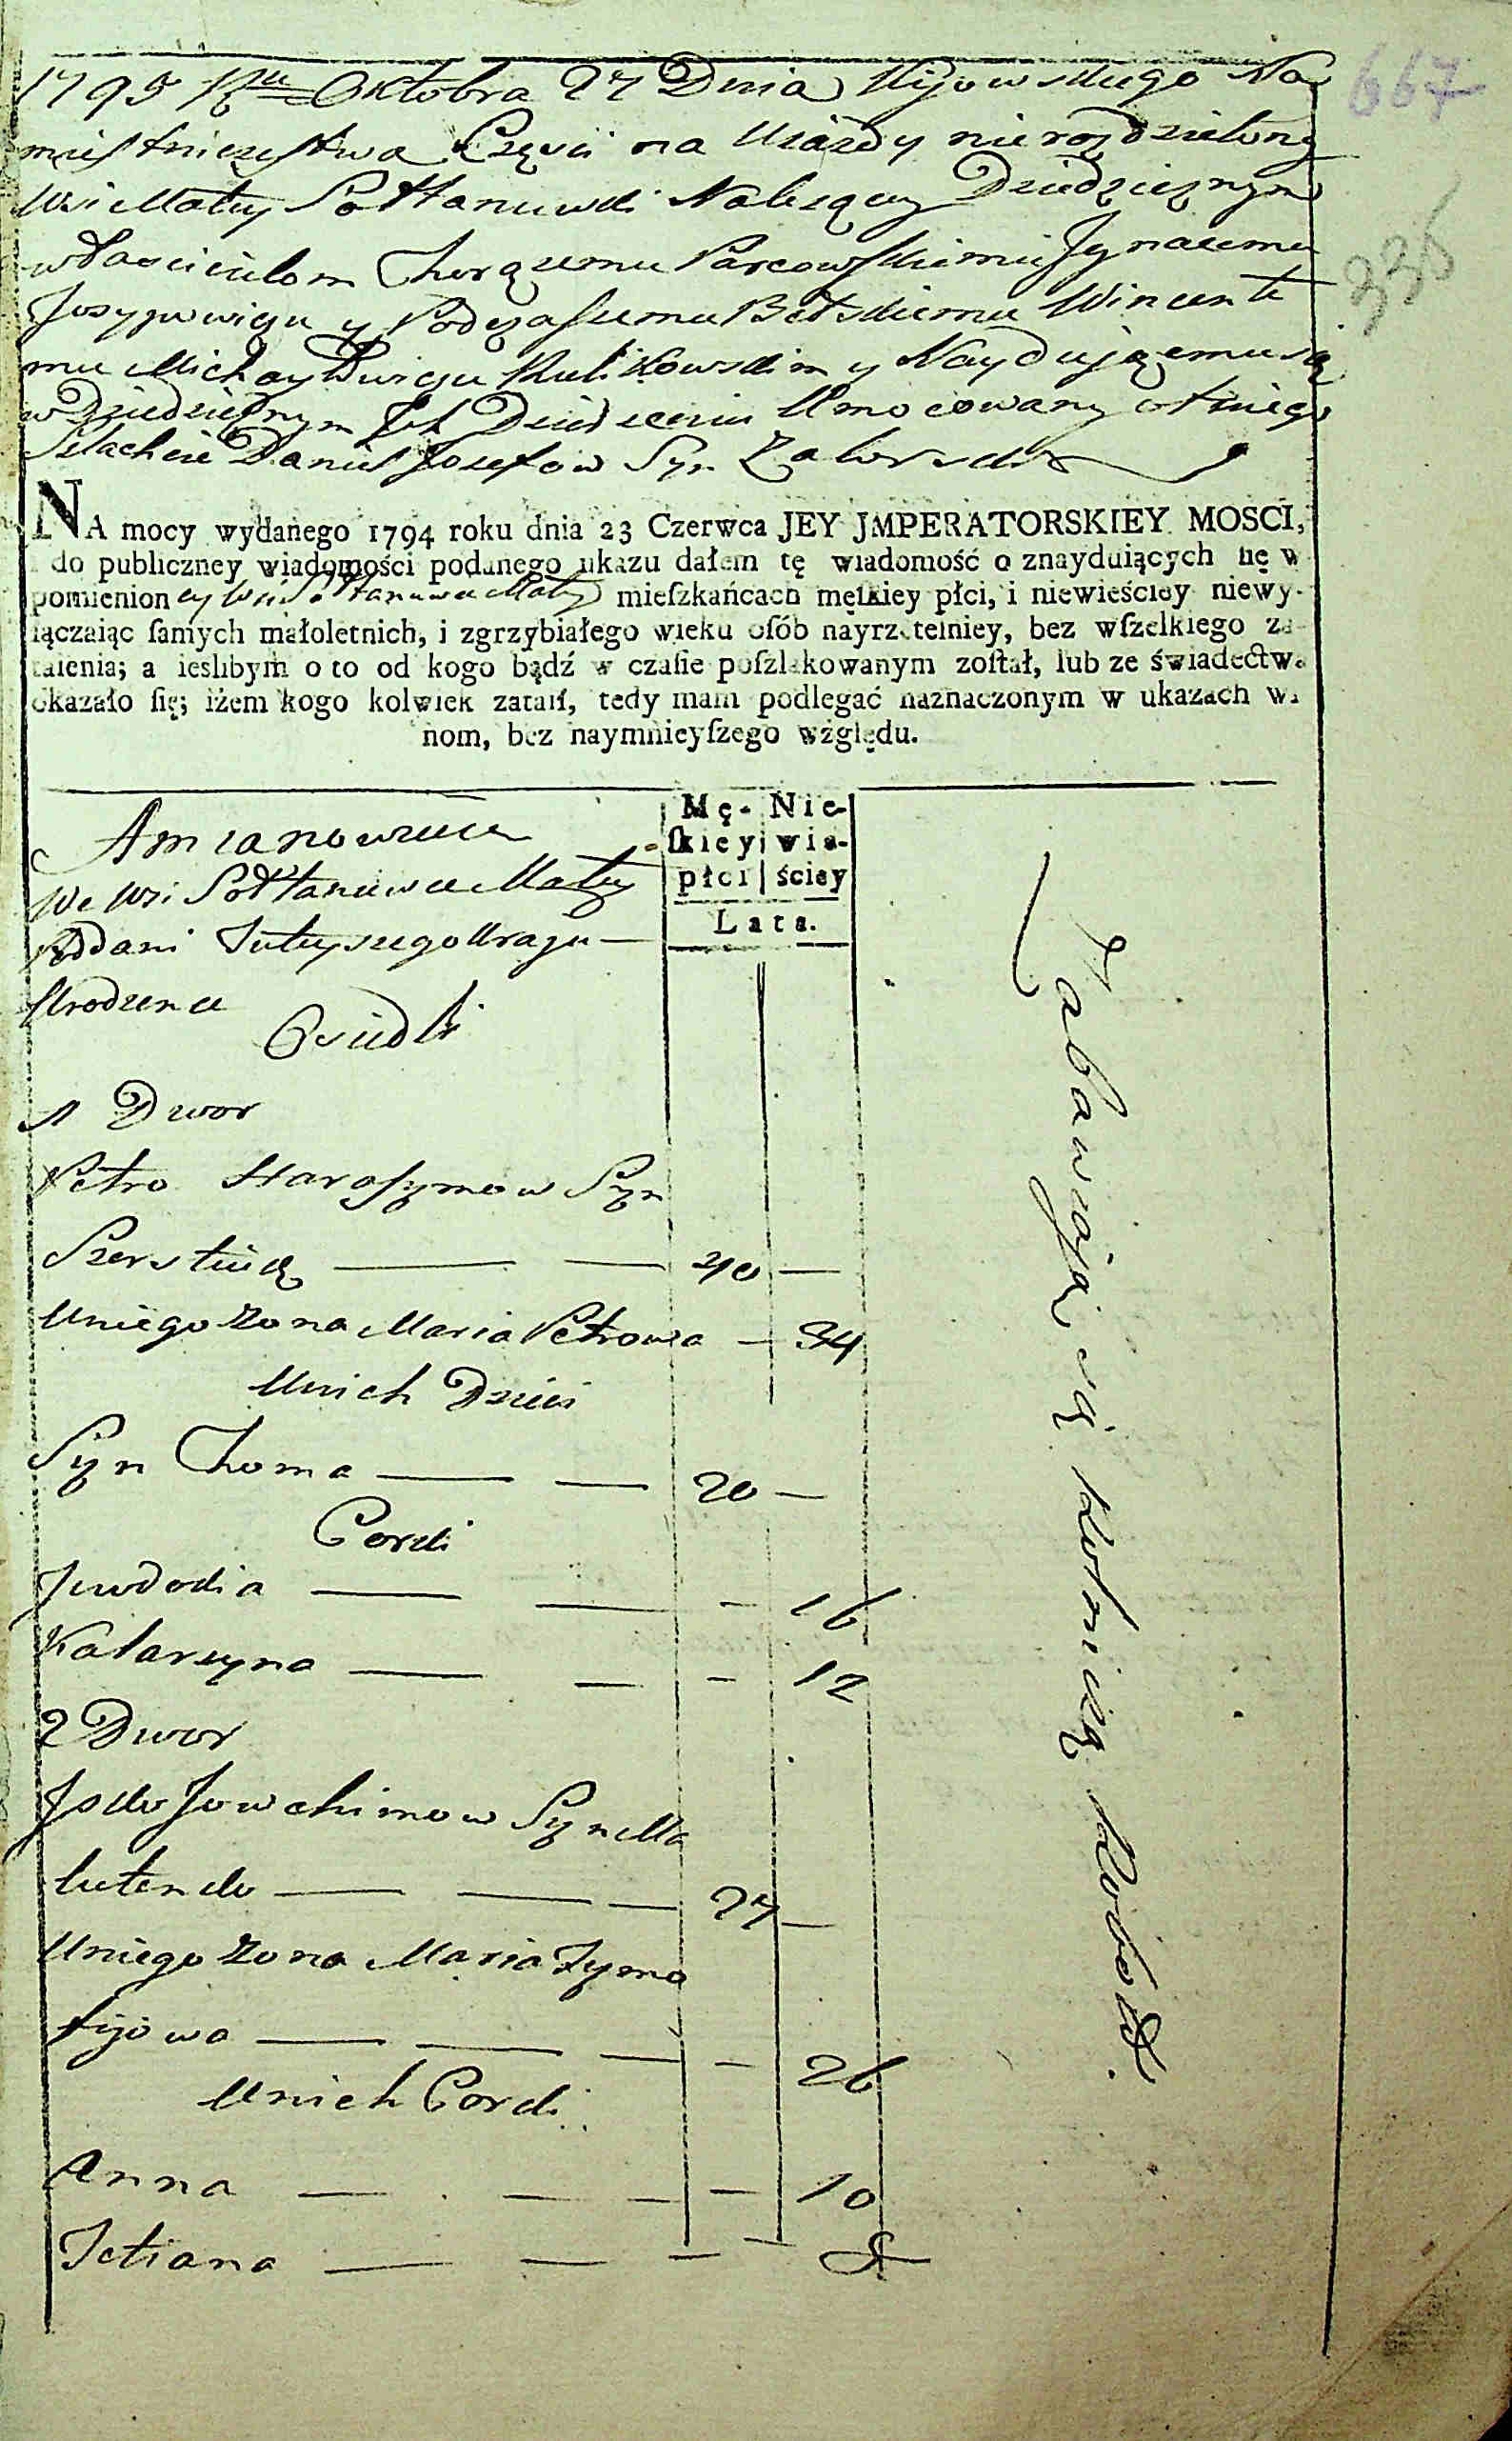 1795 Rku Oktobra 27 Dnia Kijowskiego Na
miestniczestwa Częsci na Uiazdy nierozdzielony
Wsi Małey Sołtanuwki Nalezącey Dziedzicznym
włascicielom Chorązemu Ignacemu
Josypowiczu y Podczaszemu Wincente
mu Michayłowiczu Kulikowskim y Nayduiącemu się
w Dziedzicznym Ich Dziedzeniu Umocowany ot niego
Szlachcic Daniel Josefow Syn
667
336
NA mocy wydanego 1794 roku dnia 23 Czerwca JEY JMPERATORSKIEY MOSCI,
do publiczney wiadomości podanego ukazu dałem tę wiadomość o znayduiących ſię w
pomienion ey Wsi Sołtanuwce Małey mieſzkańcach męſkiey płci, i niewieściey niewy-
łączaiąc ſamych małoletnich, i zgrzybiałego wieku oſób nayrzetelniey, bez wſzelkiego za-
taienia; a ieslibym o to od kogo bądź w czaſie poſzlakowanym zoſtał, lub ze świadectwa
okazało ſię; iżem kogo kolwiek zataił, tedy mam podlegać naznaczonym w ukazach wi-
nom, bez naymnieyſzego względu.
A mianowicie
Mę- Nie-
ſkiey wie-
płci ściey
Lata.
We Wsi Sołtanuwce Małey
Poddani Tuteyszego Kraju —
Urodzence
Osiedli
1 Dwor
Petro Harasymow Syn
— — 40 —
U niego Zona Maria Petrowa — 34
U nich Dzieci
Syn Choma — — 20 —
Corki
Jewdokia — — — 16
Katarzyna — — — 12
2 Dwor
Josko Jowchimow Syn Ma
lutenko — — — 27 —
U niego Zona Maria Tymo
fijowa — — — — 26
U nich Corki
Anna — — — — 10
Tetiana — — — — 8
Zabawiają się Rolniczą Robotą.